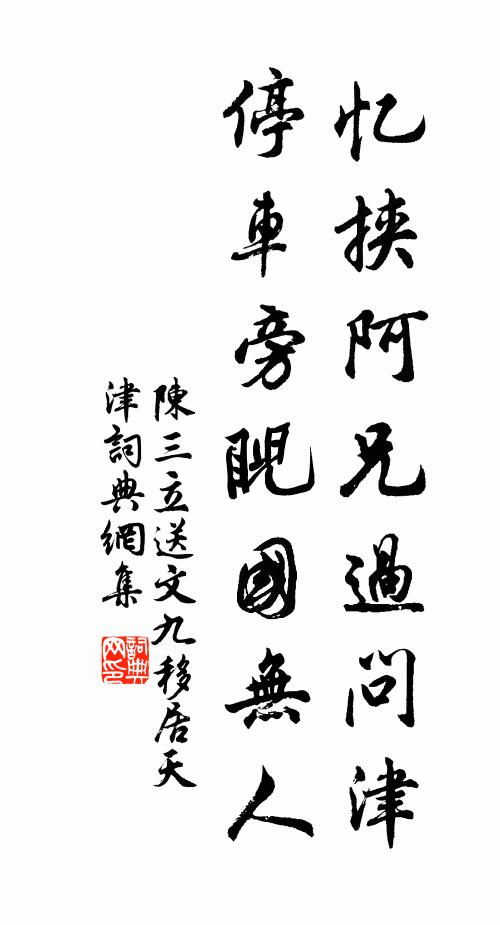 忆挾阿兄過問津
停車旁睨國無人
陳三立送文九移居天
津詞典網集
詞典
网印